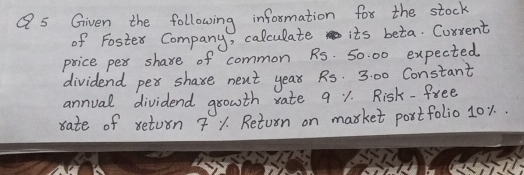 Q 5 Given the following information for the stock
of Foster Company, calculate its beta. Current
price per share of common Rs. 50.00 expected
dividend per share next year Rs. 3.00 Constant
annual dividend growth rate 9 %. Risk-free
rate of return 7 %. Return on market portfolio 10%.